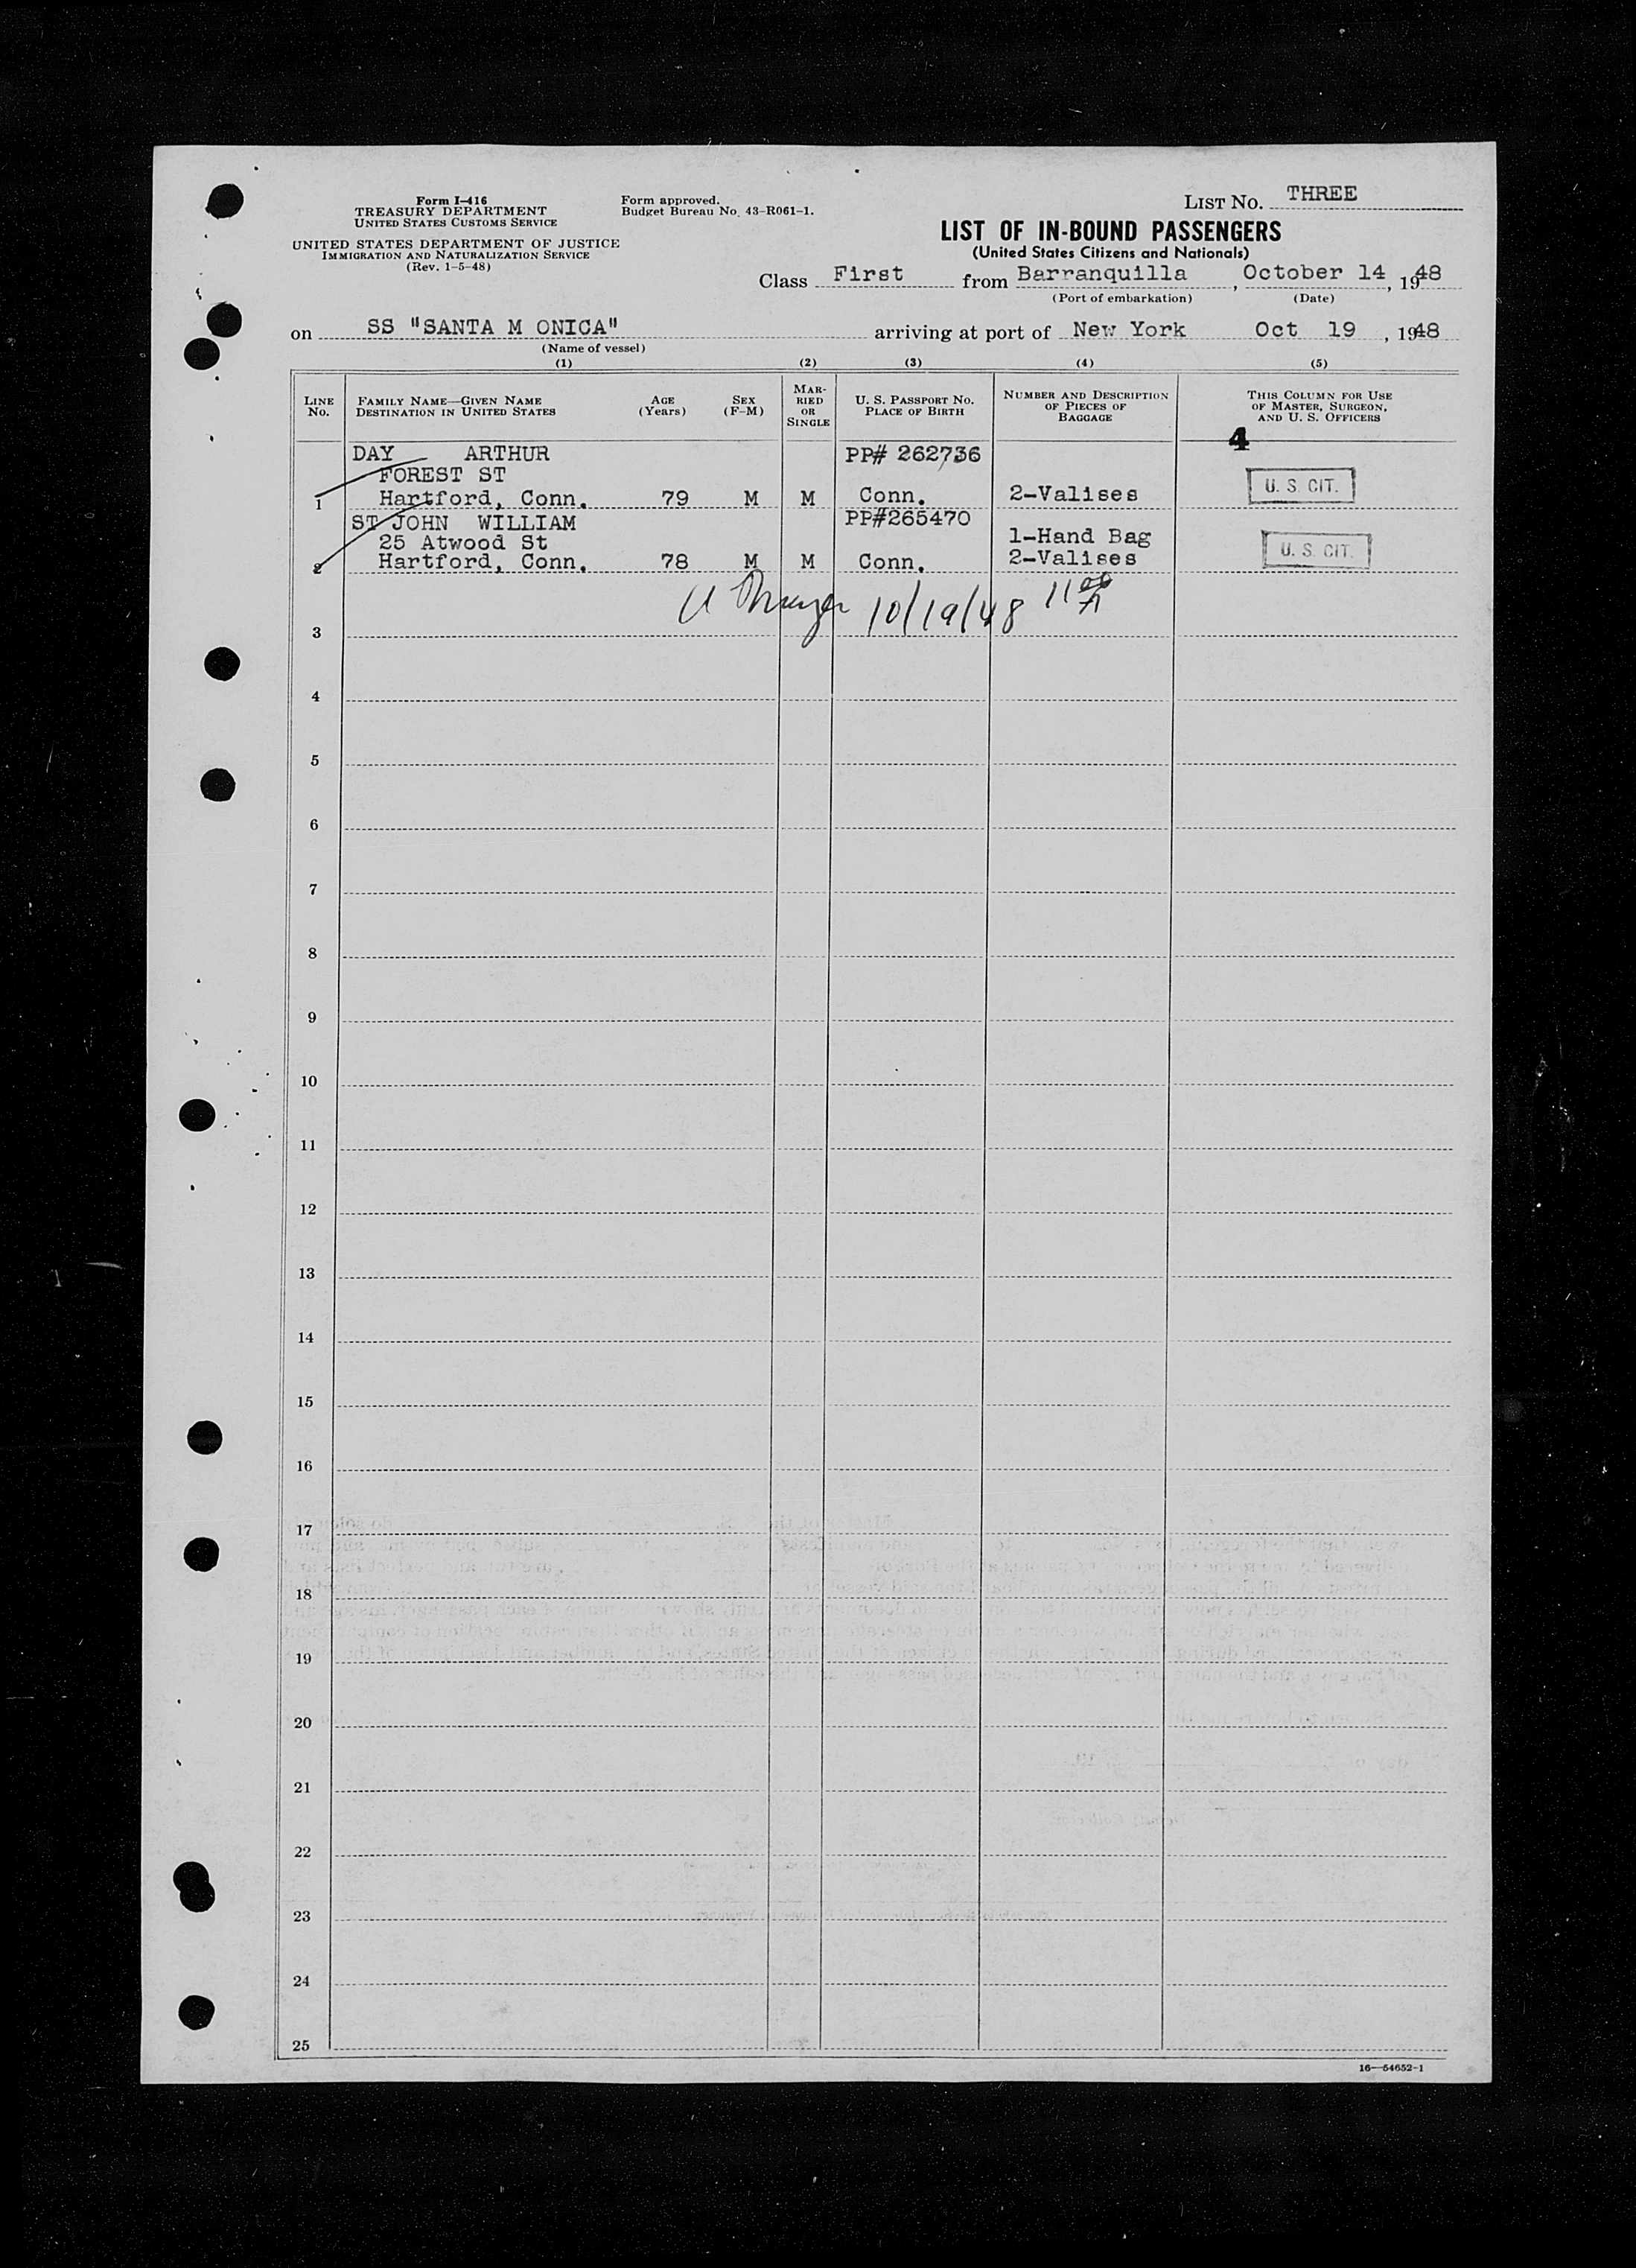 Form I-416
TREASURY DEPARTMENT
UNITED STATES CUSTOMS SERVICE
UNITED STATES DEPARTMENT OF JUSTICE
IMMIGRATION AND NATURALIZATION SERVICE
(Rev. 1-5-48)
Form approved.
Budget Bureau No. 43-R061-1.
LIST NO. THREE
LIST OF IN-BOUND PASSENGERS
(United States Citizens and Nationals)
Class First from Barranquilla, October 14, 1948
(Port of embarkation) (Date)
on SS "SANTA M ONICA" arriving at port of New York Oct 19, 1948
(Name of vessel)
(1) (2) (3) (4) (5)
LINE NO.
FAMILY NAME—GIVEN NAME
DESTINATION IN UNITED STATES
AGE (Years)
SEX (F-M)
MARRIED OR SINGLE
U. S. PASSPORT NO.
PLACE OF BIRTH
NUMBER AND DESCRIPTION OF PIECES OF BAGGAGE
THIS COLUMN FOR USE OF MASTER, SURGEON, AND U. S. OFFICERS
4
DAY ARTHUR PP# 262736
FOREST ST
1 Hartford, Conn. 79 M M Conn. 2-Valises U. S. CIT.
ST JOHN WILLIAM PP#265470
25 Atwood St 1-Hand Bag
2 Hartford, Conn. 78 M M Conn. 2-Valises U. S. CIT.
10/19/48 11 00 A
3
4
5
6
7
8
9
10
11
12
13
14
15
16
17
18
19
20
21
22
23
24
25
16—54652-1